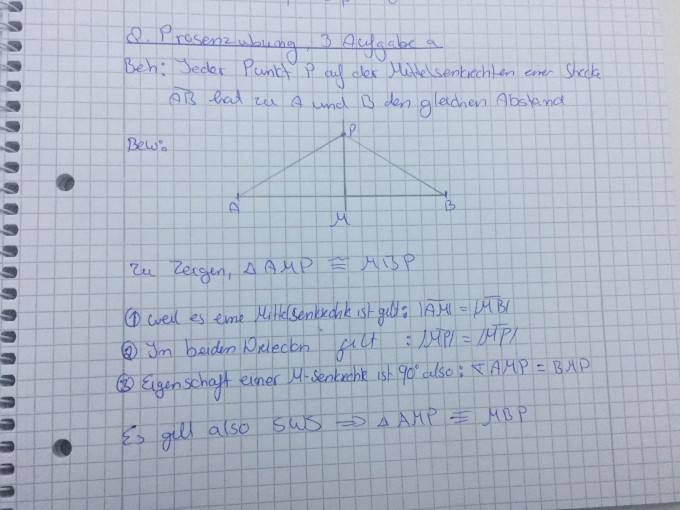 8. Präsenzübung, 3 Aufgabe a
Beh: Jeder Punkt P auf der Mittelsenkrechten einer Strecke
AB hat zu A und B den gleichen Abstand
Bew:
P
A
B
M
Zu Zeigen, △AMP ≅ MBP
① weil es eine Mittelsenkrechte ist gilt: |AM| = |MB|
② Im beiden Dreiecken gilt : |MP| = |MP|
③ Eigenschaft einer M-Senkrechte ist 90° also: ∢ AMP = BMP
Es gilt also SWS ⇒ △AMP ≅ MBP